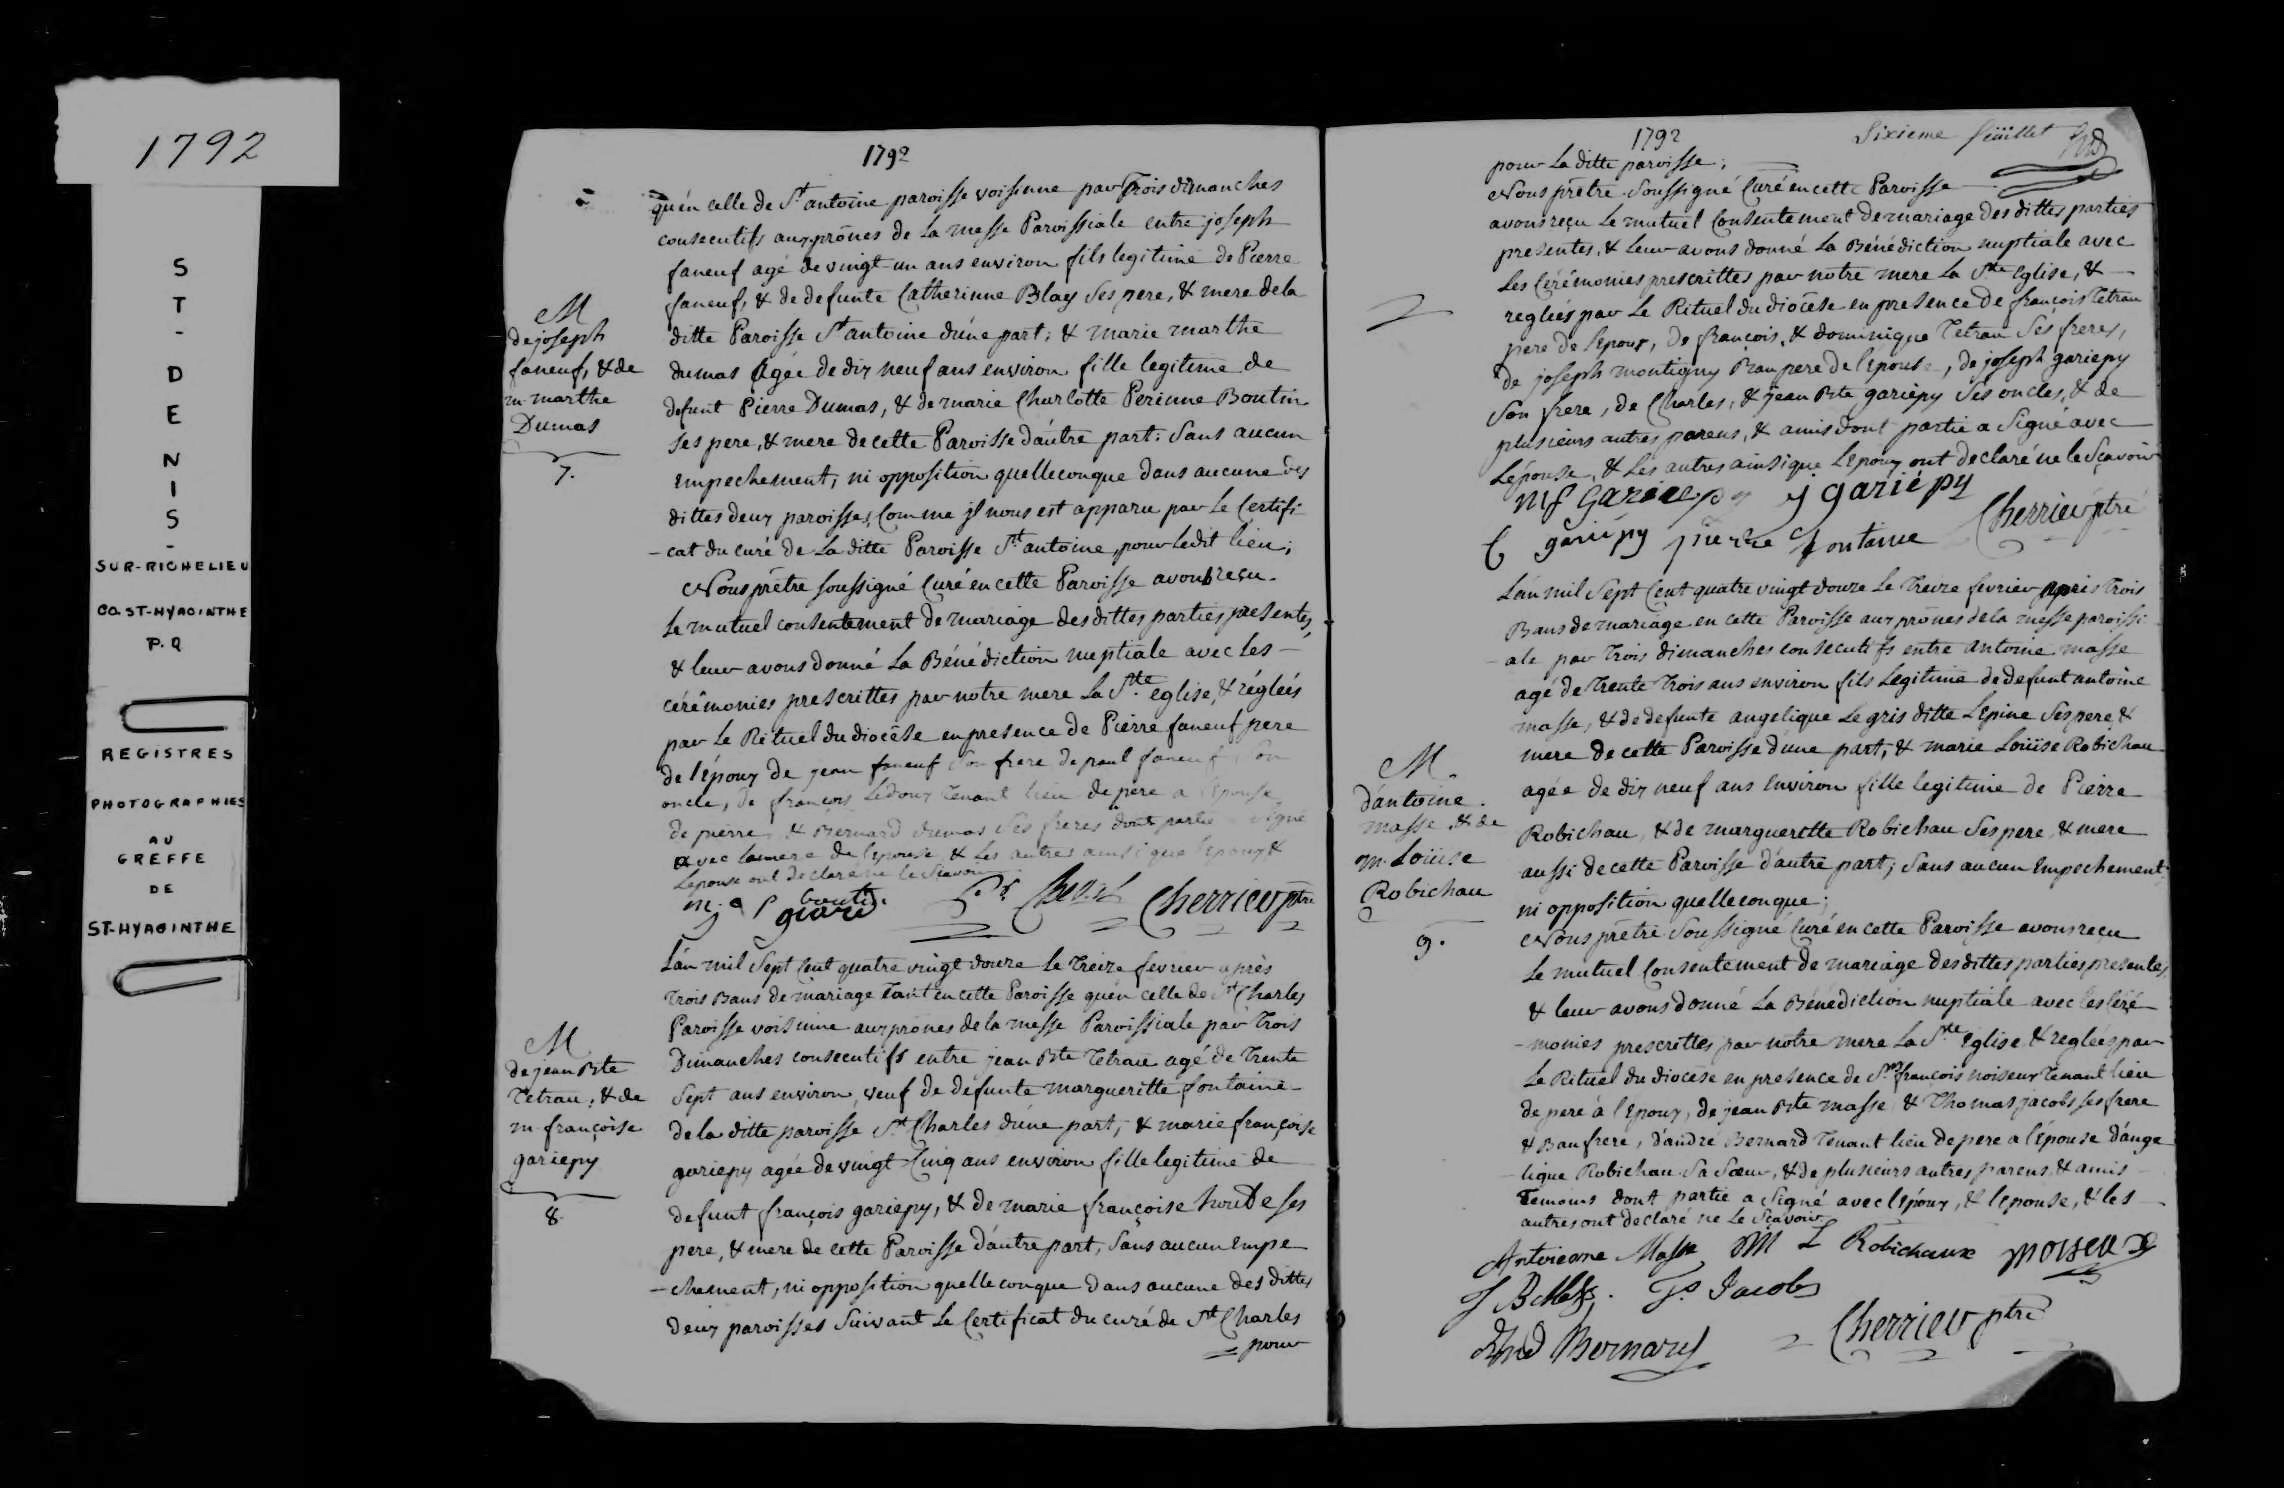 1792
S
T
-
D
E
N
I
S
-
SUR-RICHELIEU
CO. ST-HYACINTHE
P.Q
REGISTRES
PHOTOGRAPHIES
AU
GREFFE
DE
ST-HYACINTHE
1792
qu'en celle de St antoine paroisse voisinne par trois dimanches
consecutifs aux prônes de La messe Paroissiale entre joseph
faneuf agé de vingt-un ans environ fils legitime de Pierre
faneuf, & de defunte Catherinne Blay Ses pere, & mere de la
ditte Paroisse St antoine d'une part; & marie marthe
dumas Agée de dix neuf ans environ fille legitime de
defunt Pierre Dumas, & de marie Charlotte Perinne Boutin
ses pere, & mere de cette Paroisse d'autre part: Sans aucun
empechement, ni opposition quelleconque dans aucune des
dittes deux paroisses, Comme jl nous est apparu par Le Certifi
-cat du curé de La ditte Paroisse St antoine, pour Ledit lieu;
Nous prêtre soussigné Curé en cette Paroisse avons reçu
Le mutuel consentement de mariage desdittes parties presentes,
& leur avons donné La Bénédiction nuptiale avec Les
cérémonies prescrittes par notre mere La Ste eglise, & réglées
par Le Rituel du diocèse en presence de Pierre faneuf pere
de l'époux de jean faneuf Son frere de paul faneuf Son
oncle, de françois Ledoux tenant lieu de pere a l'épouse
de pierre, & Bernard dumas Ses freres dont partie Signé
avec La mere de l'epouse & Les autres ainsi que l'epoux &
Lepouse ont declaré ne le Scavoir
M
de joseph
faneuf, & de
m. marthe
Dumas
7.
boutin
giard
Cherrier ptre
L'an mil Sept Cent quatre vingt douze Le treize fevrier après
trois Bans de mariage tant en cette Paroisse qu'en celle de St Charles
Paroisse voisinne aux prônes de la messe Paroissiale par trois
Dimanches consecutifs entre jean Bte Tetrau agé de trente
Sept ans environ, veuf de defunte margueritte fontaine
de la ditte paroisse St Charles d'une part, & marie françoise
gariepy agée de vingt-Cinq ans environ fille legitime de
defunt françois gariepy, & de marie françoise houde ses
pere, & mere de cette Paroisse d'autre part, Sans aucun empe
-chement, ni opposition quelleconque dans aucune des dittes
deux paroisses Suivant Le Certificat du curé de St Charles
pour
M
de jean Bte
Tetrau, & de
m. françoise
gariepy
8.
1792
Sixieme feüillet
pour La ditte paroisse;
Nous prêtre Soussigné Curé en cette Paroisse
avons reçu Le mutuel Consentement de mariage des dittes parties
presentes, & Leur avons donné La Bénédiction nuptiale avec
Les Cérémonies prescrittes par notre mere La Ste Eglise, &
reglées par Le Rituel du diocèse en presence de françois Tetrau
pere de Lepoux, de françois, & dominique Tetrau Ses freres,
de joseph montigny Beaupere de l'épouse, de joseph gariepy
Son frere, de Charles, & jean Bte gariepy Ses oncles, & de
plusieurs autres parens, & amis dont partie a Signé avec
L'épouse, & Les autres ainsi que L'epoux ont declaré ne le Sçavoir
mf Gariepy j gariépy
C gariepy pierre fontaine Cherrier ptre
L'an mil Sept Cent quatre vingt douze Le treize fevrier après trois
Bans de mariage en cette Paroisse aux prônes de la messe paroissi
-ale par trois dimanches consecutifs entre antoine masse
agé de trente trois ans environ fils Legitime de defunt antoine
masse, & de defunte angelique Le gris ditte Lepine Ses pere &
mere de cette Paroisse d'une part, & marie Loüise Robichau
agée de dix neuf ans environ fille legitime de Pierre
Robichau, & de margueritte Robichau Ses pere, & mere
aussi de cette Paroisse d'autre part; Sans aucun Empechement
ni opposition quelleconque;
Nous prêtre Soussigné Curé en cette Paroisse avons reçu
Le mutuel Consentement de mariage des dittes parties presentes,
& leur avons donné La Bénédiction nuptiale avec les Céré
-monies prescrittes par notre mere La Ste Eglise & reglées par
Le Rituel du diocèse en presence de françois noiseux tenant lieu
de pere à l'Epoux, de jean Bte masse & Thomas jacobs ses frere
& Beaufrere, d'andré Bernard tenant lieu de pere a l'épouse d'ange
lique Robichau Sa Sœur, & de plusieurs autres parens, & amis
Temoins dont partie a Signé avec l'époux, & l'epouse, & les
autres ont declaré ne Le Sçavoir
M
d'antoine
masse, & de
m. Loüise
Robichau
9.
Antoienne Masse M L Robichaux noiseux
Ts Jacobs
And Bernard Cherrier ptre